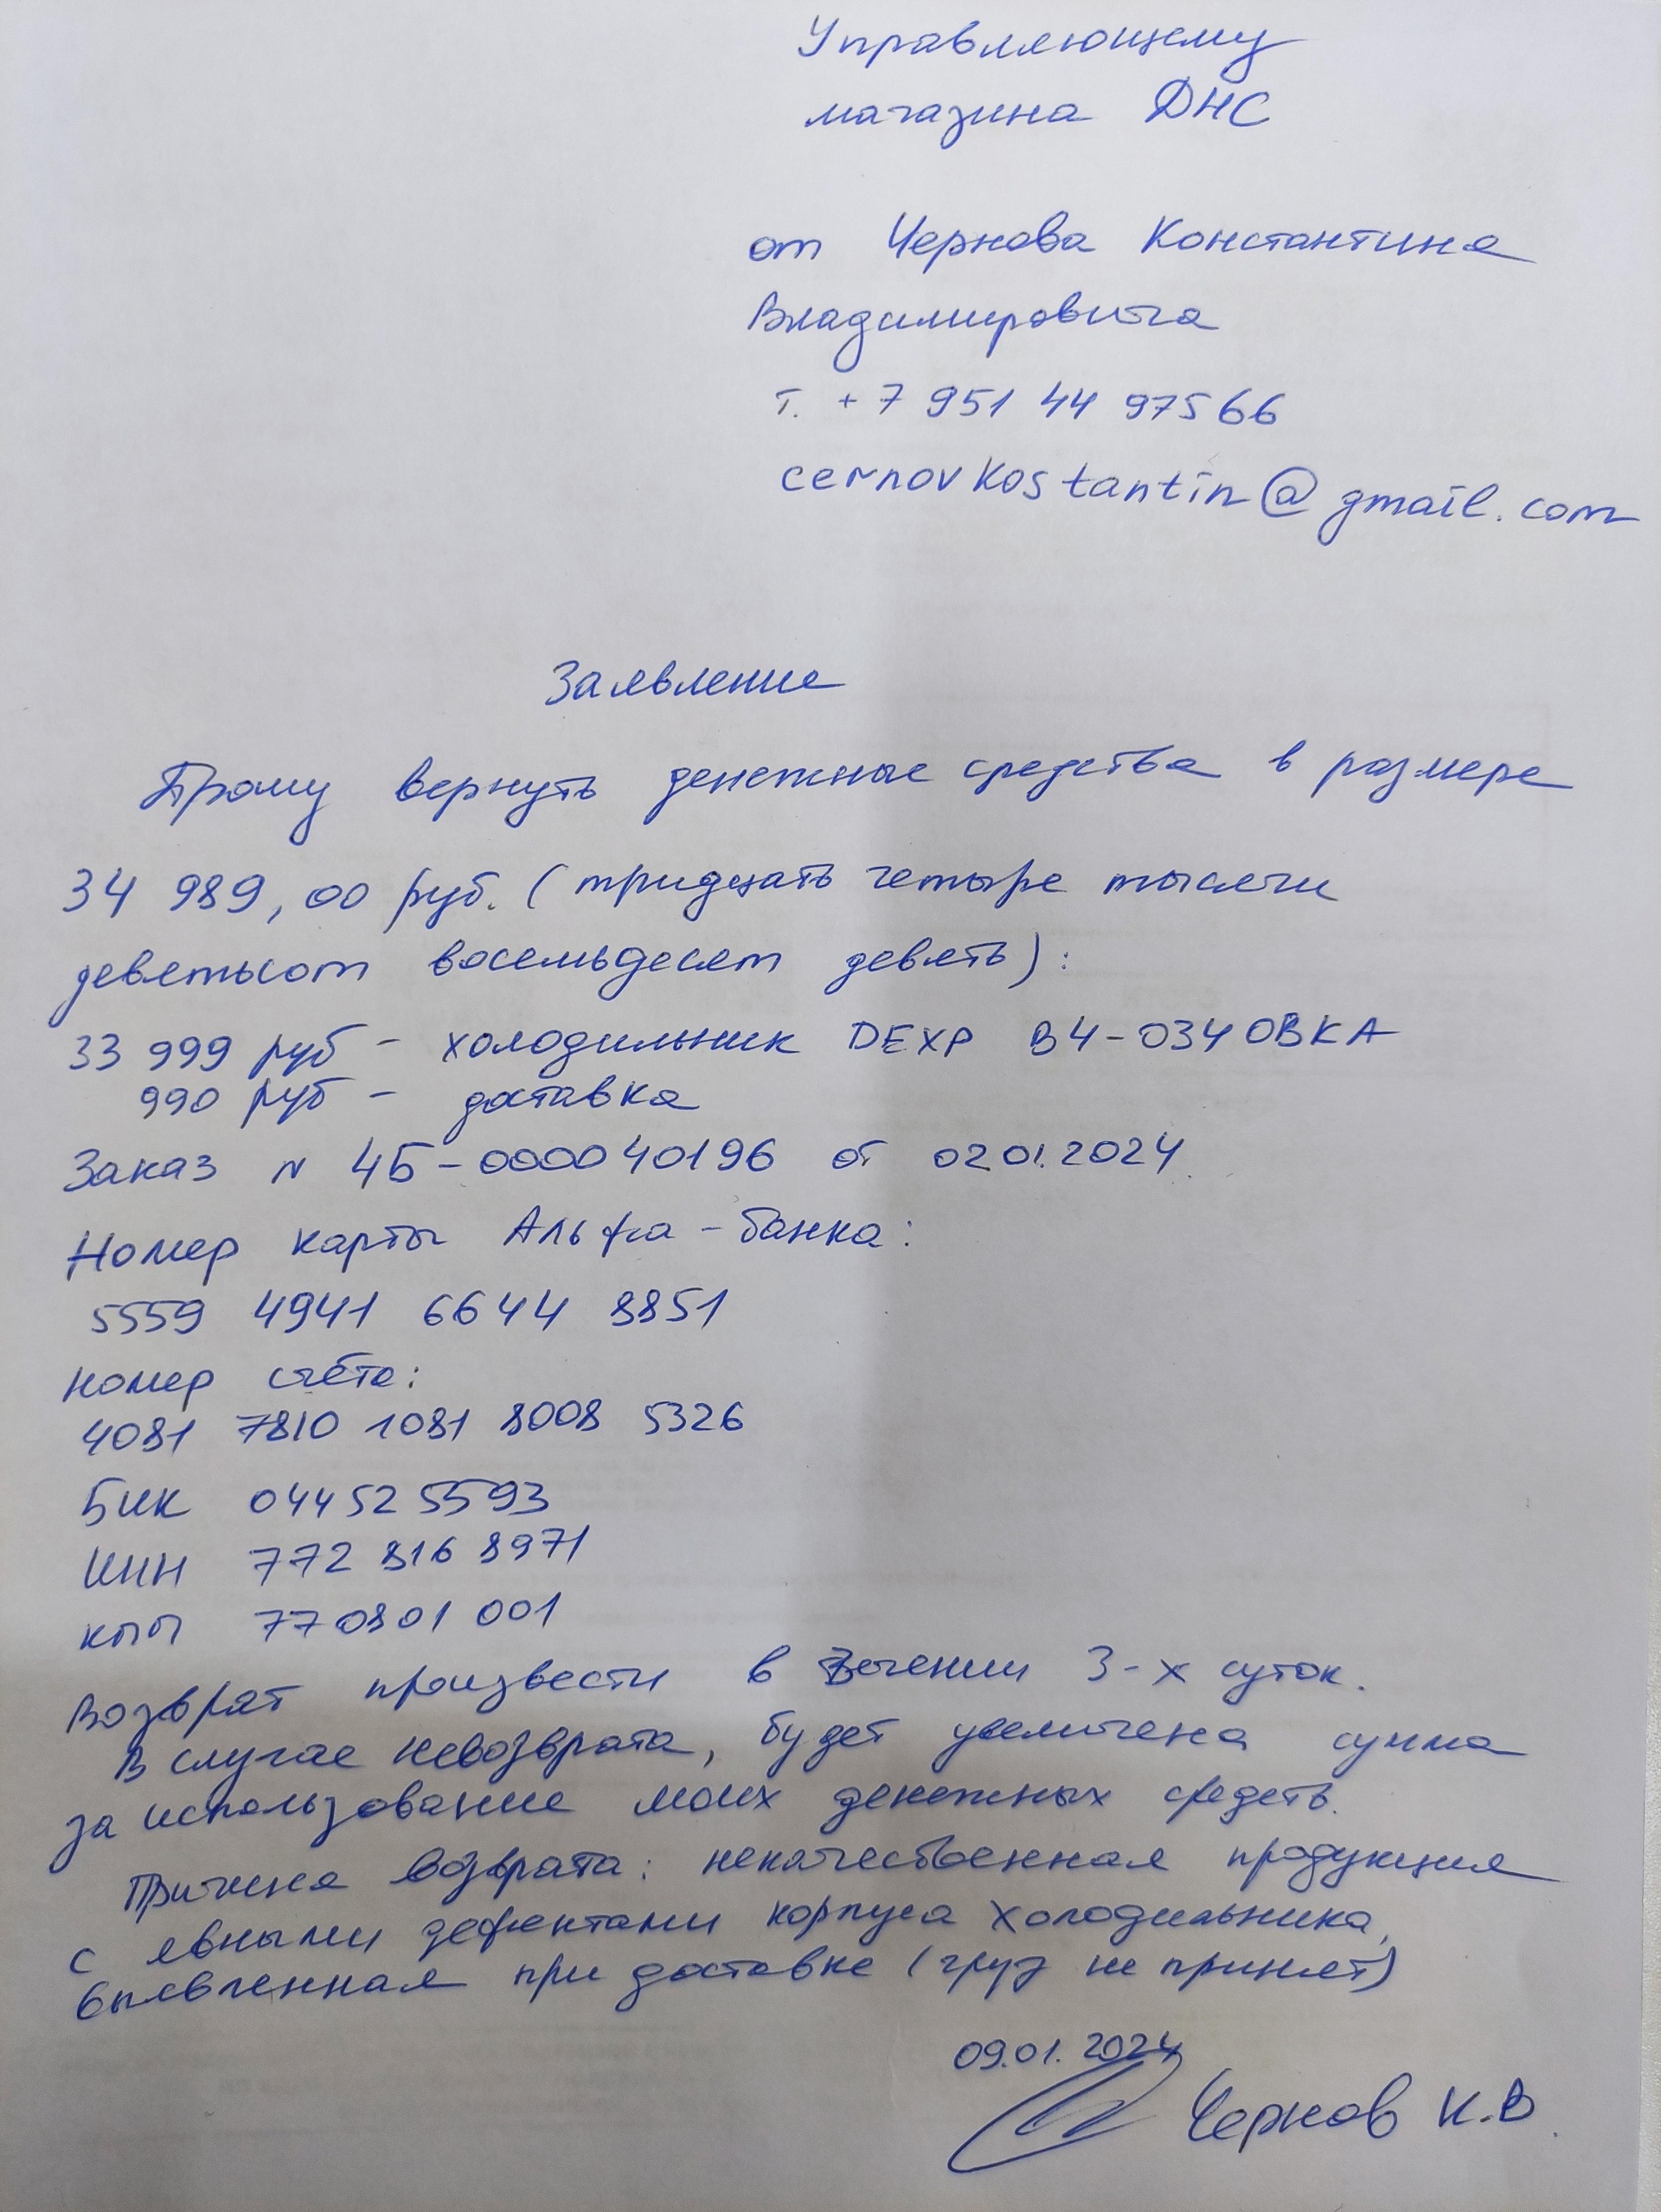 Управляющему
магазина ДНС
от Чернова Константина
Владимировича
т. +7 951 44 97566
cernovkostantin@gmail.com
Заявление
Прошу вернуть денежные средства в размере
34 989,00 руб. (тридцать четыре тысячи
девятьсот восемьдесят девять):
33 999 руб - холодильник DEXP B4-0340BKA
990 руб - доставка
Заказ N 4Б-000040196 от 02.01.2024
Номер карты Альфа-банка:
5559 4941 6644 8851
номер счёта:
4081 7810 1081 8008 5326
БИК 044525593
ИНН 772 816 8971
КПП 770801 001
Возврат произвести в течении 3-х суток.
В случае невозврата, будет увеличена сумма
за использование моих денежных средств.
Причина возврата: некачественная продукция
с явными дефектами корпуса холодильника,
выявленная при доставке (груз не принят)
09.01.2024
Чернов К.В.